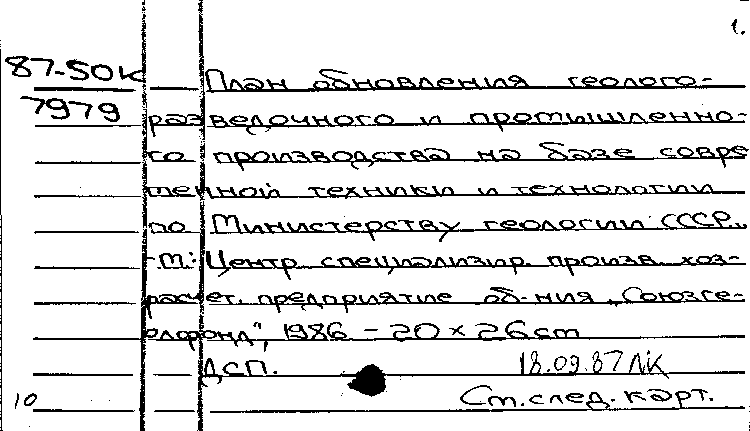 1.
87-50к План обновления геолого-
7979 разведочного и промышленно-
го производства на базе совре
менной техники и технологии
по Министерству геологии СССР.,
-М.: Центр специализир. произв. хоз-
расчет. предприятие об-ния „Союзге-
олфонд", 1986 - 20 × 26 cm
ДСП. 18.09.87 ЛК
10 Ст.след. карт.